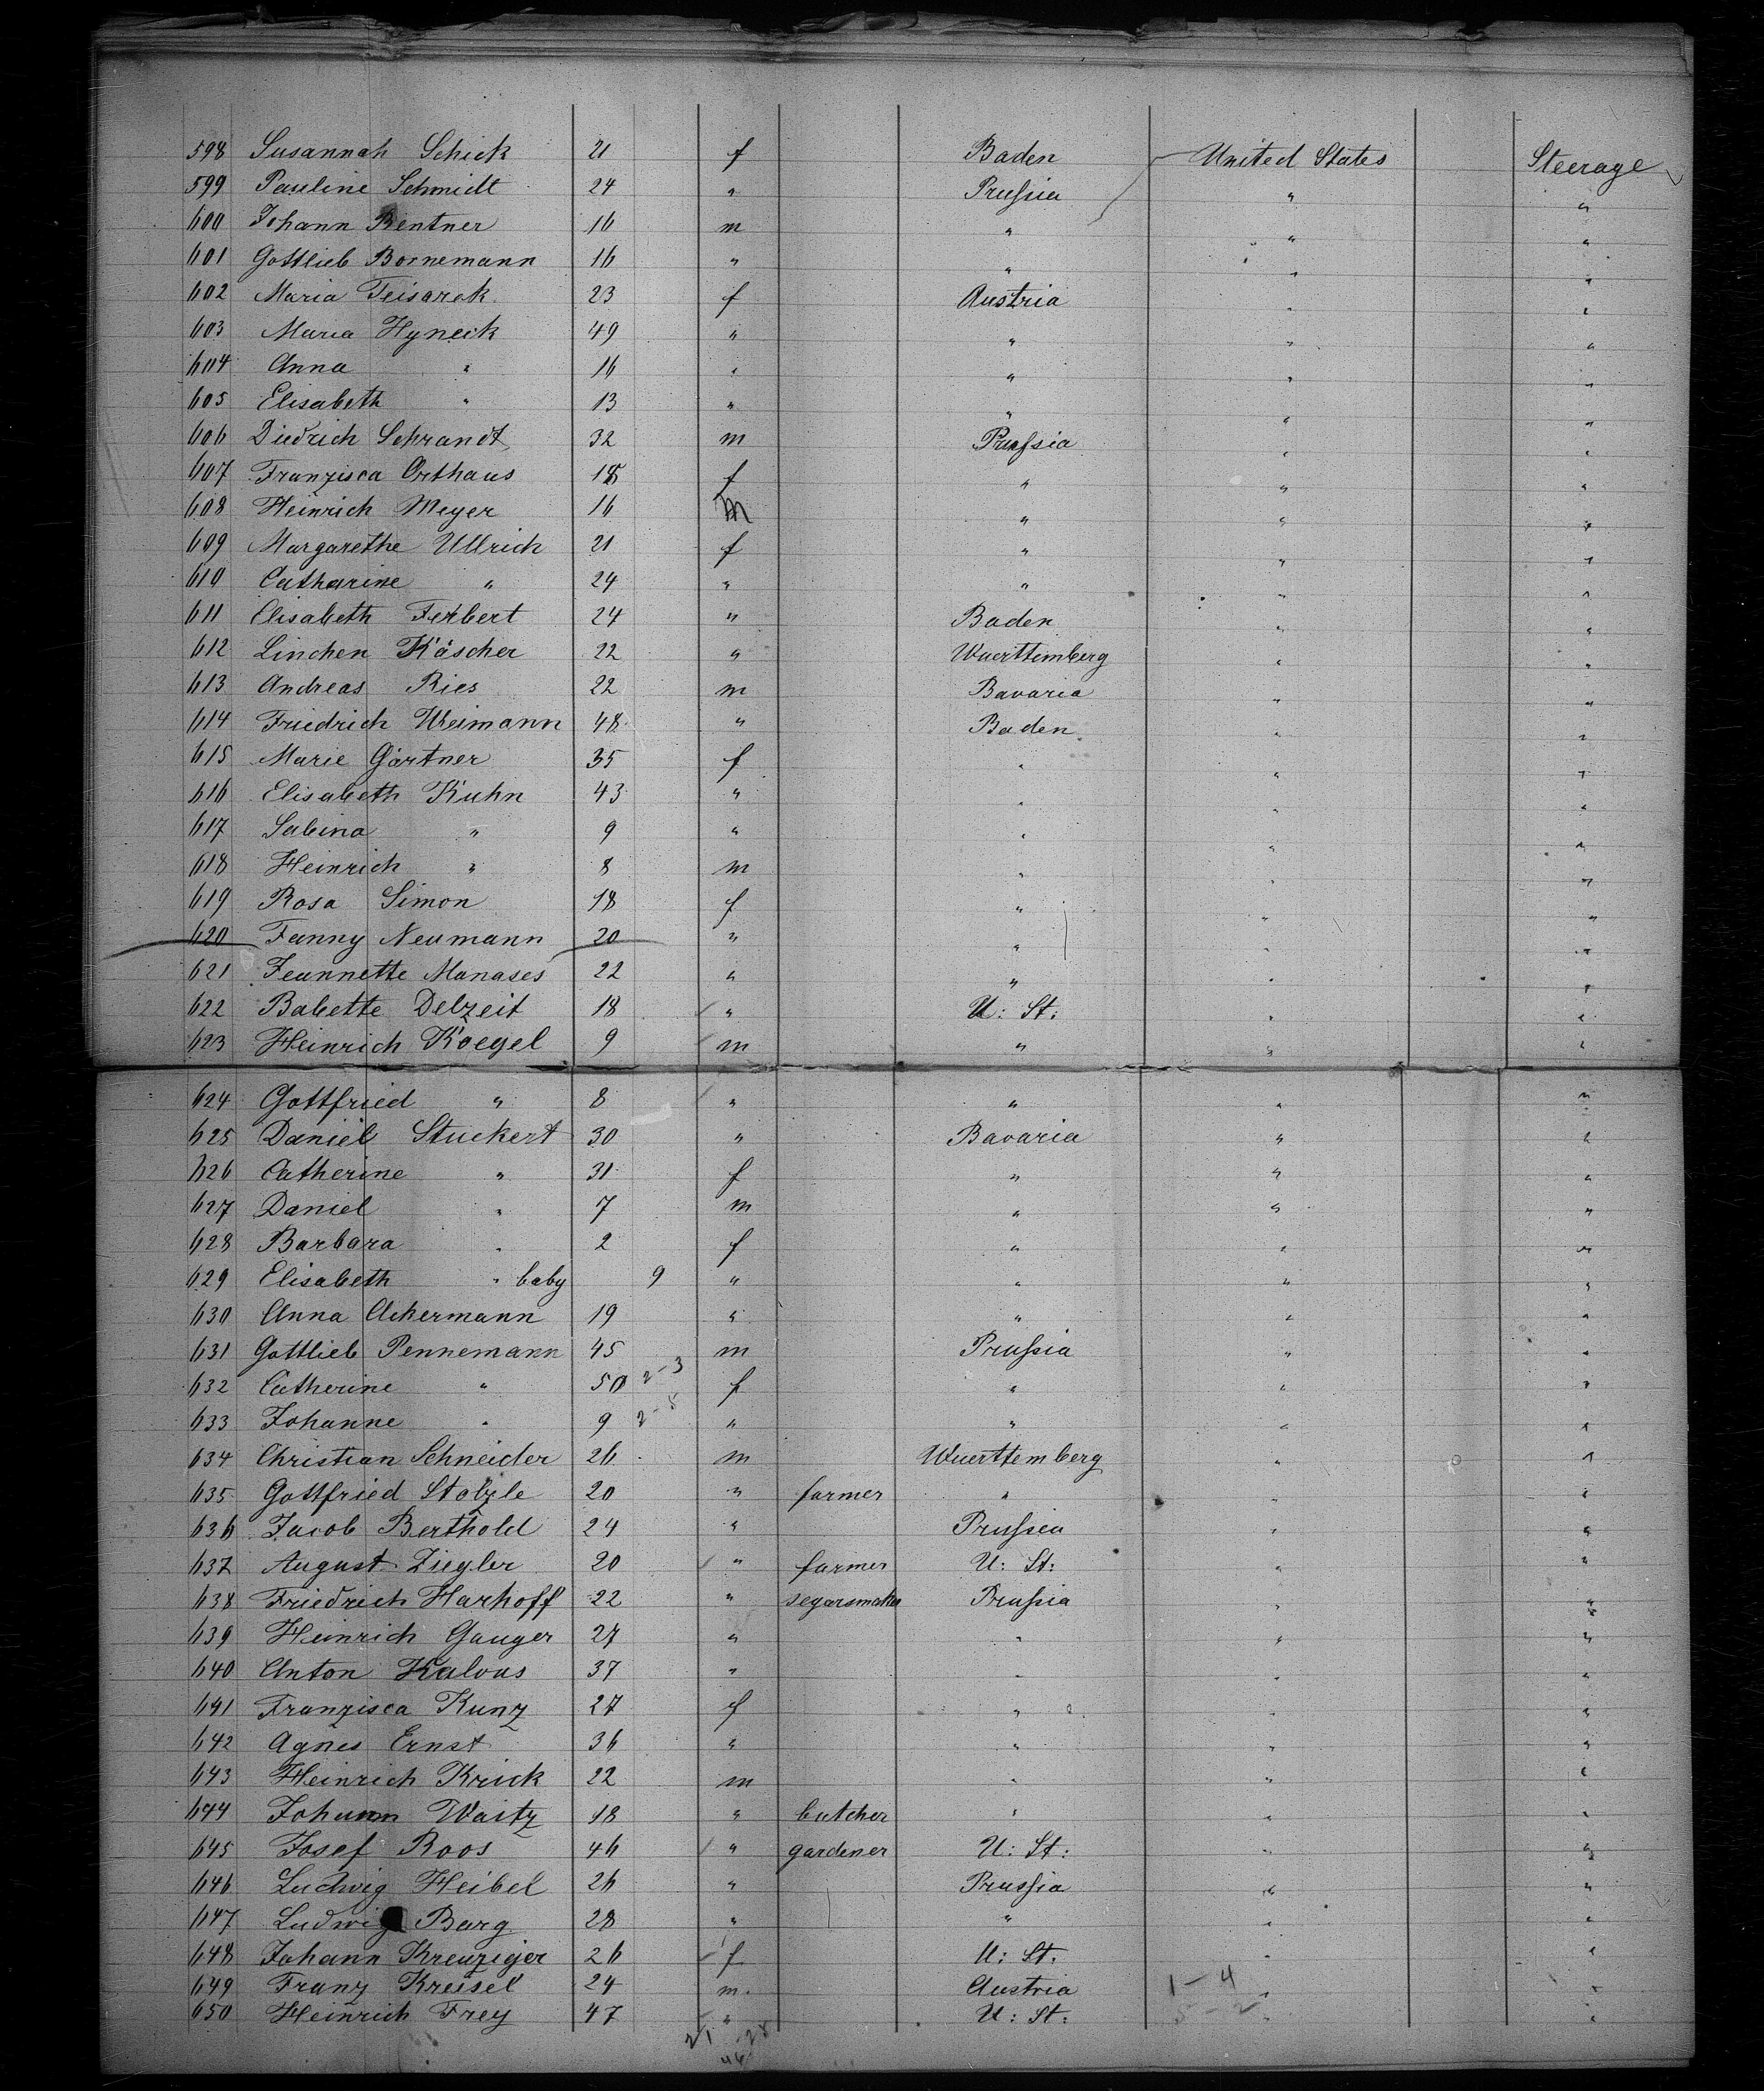 598 Susannah Schick 21 f Baden United States Steerage
599 Pauline Schmidt 24 " Prussia " "
600 Johann Bentner 16 m " " "
601 Gottlieb Bornemann 16 " " " "
602 Maria Teisarek 23 f Austria " "
603 Maria Hyneck 49 " " " "
604 Anna " 16 " " " "
605 Elisabeth " 13 " " " "
606 Diedrich Schrandt 32 m Prussia " "
607 Franzisca Orthaus 18 f " " "
608 Heinrich Meyer 16 m " " "
609 Margarethe Ullrich 21 f " " "
610 Catharine " 24 " " " "
611 Elisabeth Ferbert 24 " Baden " "
612 Linchen Käscher 22 " Wuerttemberg " "
613 Andreas Ries 22 m Bavaria " "
614 Friedrich Weimann 48 " Baden " "
615 Marie Gärtner 35 f " " "
616 Elisabeth Kuhn 43 " " " "
617 Sabina " 9 " " " "
618 Heinrich " 8 m " " "
619 Rosa Simon 18 f " " "
620 Fanny Neumann 20 " " " "
621 Jeannette Manases 22 " " " "
622 Babette Delzeit 18 " U: St: " "
623 Heinrich Koegel 9 m " " "
624 Gottfried " 8 " " " "
625 Daniel Stuckert 30 " Bavaria " "
626 Catherine " 31 f " " "
627 Daniel " 7 m " " "
628 Barbara " 2 f " " "
629 Elisabeth " baby 9 " " " "
630 Anna Ackermann 19 " " " "
631 Gottlieb Pennemann 45 m Prussia " "
632 Catherine " 50 2-3 f " " "
633 Johanne " 9 " " " "
634 Christian Schneider 26 m Wuerttemberg " "
635 Gottfried Stolzle 20 " farmer " " "
636 Jacob Berthold 24 " Prussia " "
637 August Ziegler 20 " farmer U: St: " "
638 Friedrich Harhoff 22 " segarsmaker Prussia " "
639 Heinrich Gauger 27 " " " "
640 Anton Kalous 37 " " " "
641 Franzisca Kunz 27 f " " "
642 Agnes Ernst 36 " " " "
643 Heinrich Krick 22 m " " "
644 Johann Waitz 18 " butcher " " "
645 Josef Roos 46 " gardener U: St: " "
646 Ludwig Heibel 26 " Prussia " "
647 Ludwig Barg 28 " " " "
648 Johann Kreuziger 26 f U: St. " "
649 Franz Kreisel 24 m. Austria 1-4 " "
650 Heinrich Frey 47 " U: St: " "